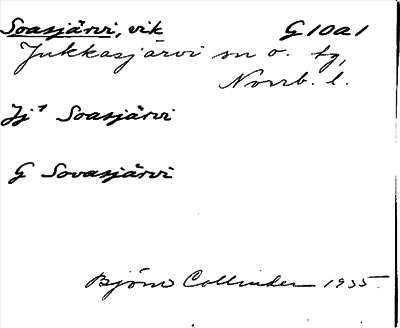 Soasjärvi, vik G10a1
Jukkasjärvi sn o. tg,
Norrb. l.
Jj¹ Soasjärvi
G Sovasjärvi
Björn Collinder 1935